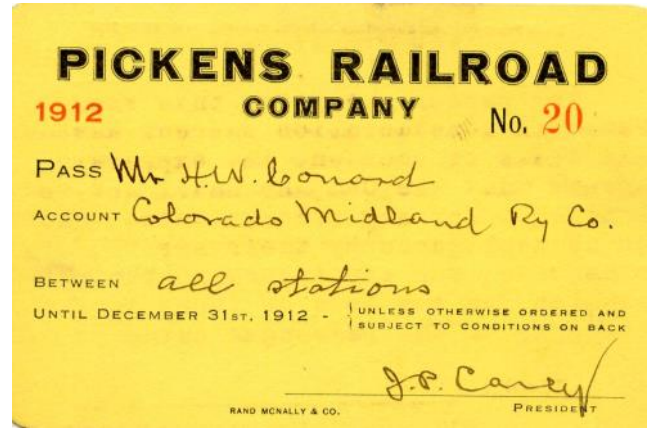 PICKENS RAILROAD
COMPANY
1912 No. 20
PASS Mr H.W. Conard
ACCOUNT Colorado Midland Ry Co.
BETWEEN all stations
UNTIL DECEMBER 31ST, 1912 - UNLESS OTHERWISE ORDERED AND
SUBJECT TO CONDITIONS ON BACK
J.P. Carey
RAND MCNALLY & CO. PRESIDENT